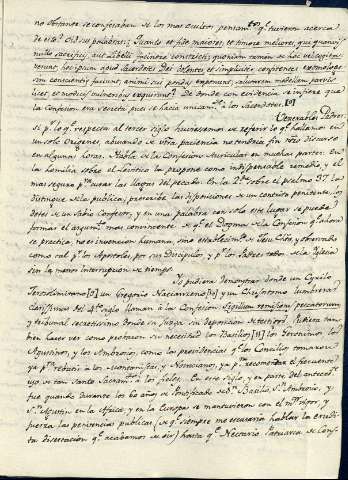 no obstante se confesaban de los mas ocultos pensam.tos q.e tuvieron acerca
de esto. Oid sus palabras: Quanto et fide maiores, et timore meliores, qui quamvis
nullo sacrificii, aut libelli facinore constricti, quoniam tamen de hoc vel cogita
verunt, hoc ipsum apud Sacerdotes Dei dolentes et simpliciter confitentes exomologe
sim conscientiae faciunt, animi sui pondus exponunt, salutarem medellam parvis
licet, et modicis vulneribus exquirunt. De donde con evidencia se infiere que
la confesion era secreta pues se hacia unicam.te a los Sacerdotes.
Venerables Padres:
si p.r lo q.e respecta al tercer siglo huviesemos de referir lo q.e hallamos en
un solo Origenes, abusando de vtra. paciencia no tendria fin mi discurso
en algunas horas. Habla de la Confesion Auricular en muchas partes. En
la homilia sobre el Levitico la propone como indispensable remedio, y el
mas seguro p.a curar las llagas del pecado. En la 2.a sobre el psalmo 37. la
distingue de la publica, prescribe las disposiciones de un contrito penitente, los
dotes de un sabio Confesor, y en una palabra con solo este lugar se puede
formar el argum.to mas convincente de q.e el Dogma de la Confesion q.e ahora
se practica, no es invencion humana, sino establecim.to de Jesu Cristo, y observado
como tal p.r los Apostoles, por sus Discipulos y p.r los Padres todos de la Iglesia
sin la menor interrupcion de tiempo.
Yo pudiera demonstrar donde un Cyrilo
Jerosolimitano, un Gregorio Nacianceno y un Crisostomo lumbreras
clarisimas del 4.o siglo llaman a la Confesion Sigillum remissionis peccatorum
y tribunal secretisimo donde se juzga sin deposicion de testigos. Pudiera tam
bien hacer ver como predican su necesidad los Basilios, los Geronimos los
Agustinos, y los Ambrosios; como las presidencias q.e los Concilios tomaron
ya p.a rebatir a los Montanistas, y Novacianos, ya p.a recomendar el frecuente
uso de tan Santo Sacram.to a los fieles. En este siglo y en parte del antece
fue quando durante los 60 años de Pontificado de S.n Basilio, S.n Ambrosio, y
S.n Agustin, en la Africa, y en la Europa se mantuvieron con el m.or vigor, y
fuerza las penitencias publicas (de q.e siempre me escusaria hablar la erudi
ta disertacion q.e acabamos de oir) hasta q.e Nectario Patriarca de Cons.